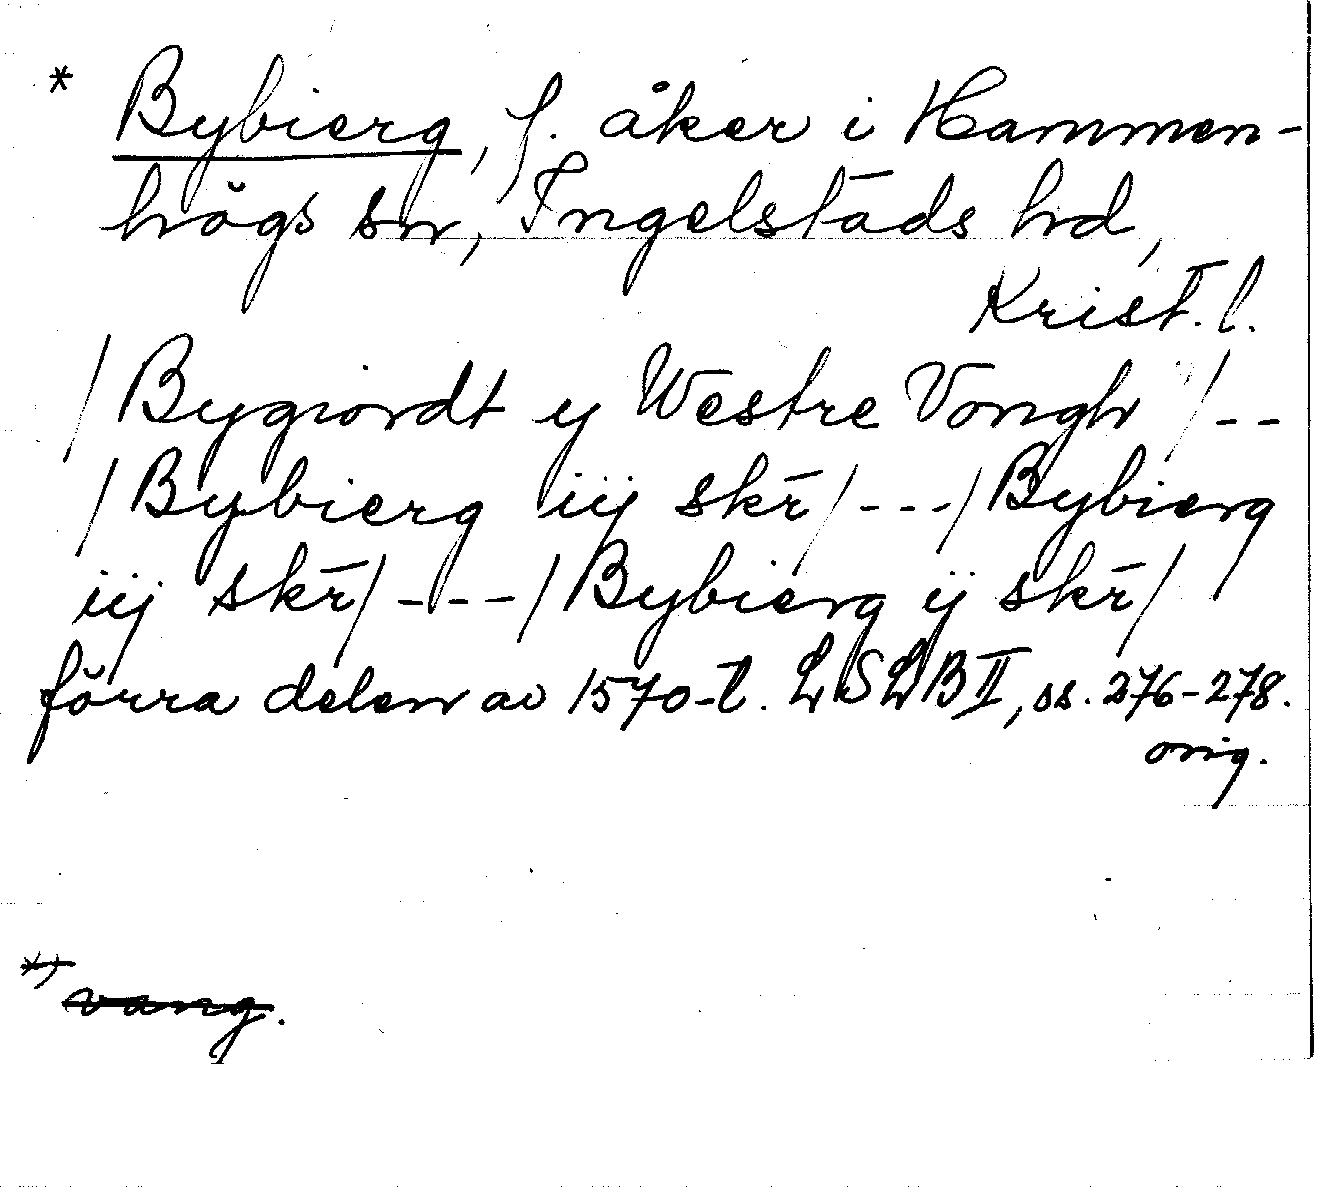 * Bybierg, f. åker i Hammen-
högs sn, Ingelstads hd,
Krist. l.
/Bygiordt y Westre Vongh/--
/Bybierg iij skr̄/---/Bybierg
iij skr̄/----/Bybierg ij skr̄/
förra delen av 1570-t. LSLB II, ss. 276-278.
orig.
*) vang.